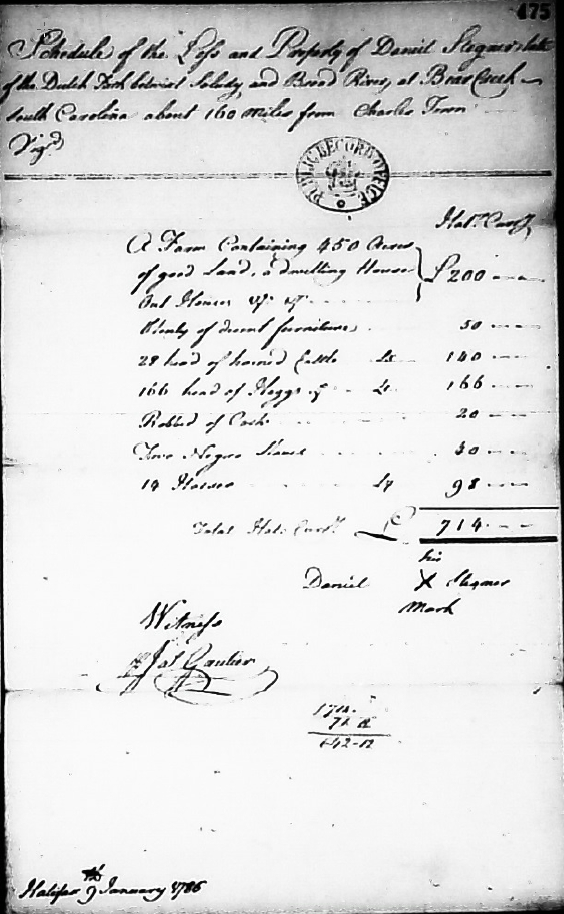 475
Schedule of the Loss and Property of Daniel Stegner late
of the Dutch Fork betwixt Saludy and Broad River, at Bear Creek
South Carolina about 160 Miles from Charles Town
Vizᵈ
PUBLIC RECORD OFFICE
Halˣ Curʸ
A Farm Containing 450 Acres
of good Land, a dwelling House £200
Out Houses &c &c
Plenty of decent furniture 50
28 head of horned Cattle £5 140
166 head of Hoggs @ £1 166
Robbed of Cash 20
Two Negroe Slaves 40
14 Horses £7 98
Total Halˣ Curʸ £ 714
his
Daniel X Stegner
Mark
Witness
Jaˢ Gautier
714
71 8
642-12
Halifax 9th January 1786